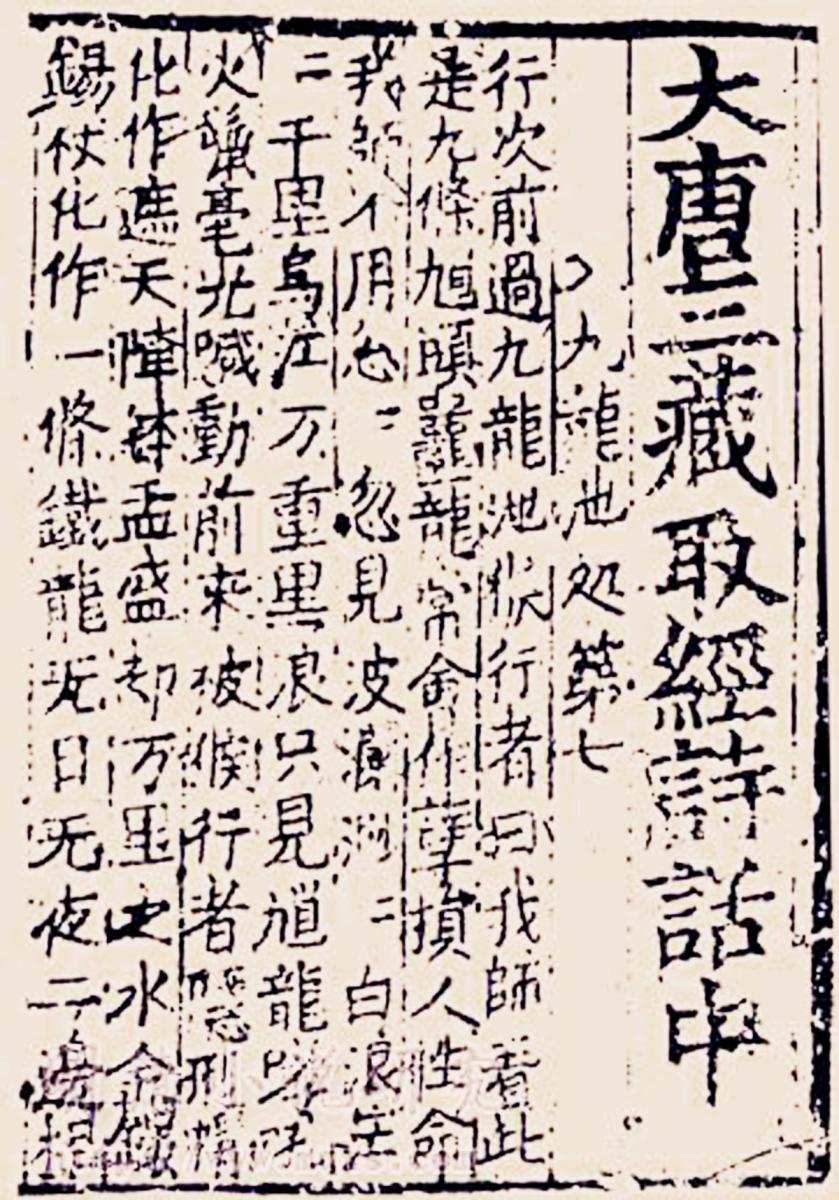 大唐三藏取經詩話中
九龍池处第七
行次前過九龍池猴行者曰我師看此
是九條馗頭鼉龍常會作孽損人性命
我師不用怱〻忽見波瀾渺〻白浪茫
〻千里烏江万重黑浪只見馗龍哮吼
火鬣毫光喊動前來被猴行者隱形帽
化作遮天陣鉢盂盛却万里之水金鐶
錫杖化作一條鐵龍无日无夜二邊相